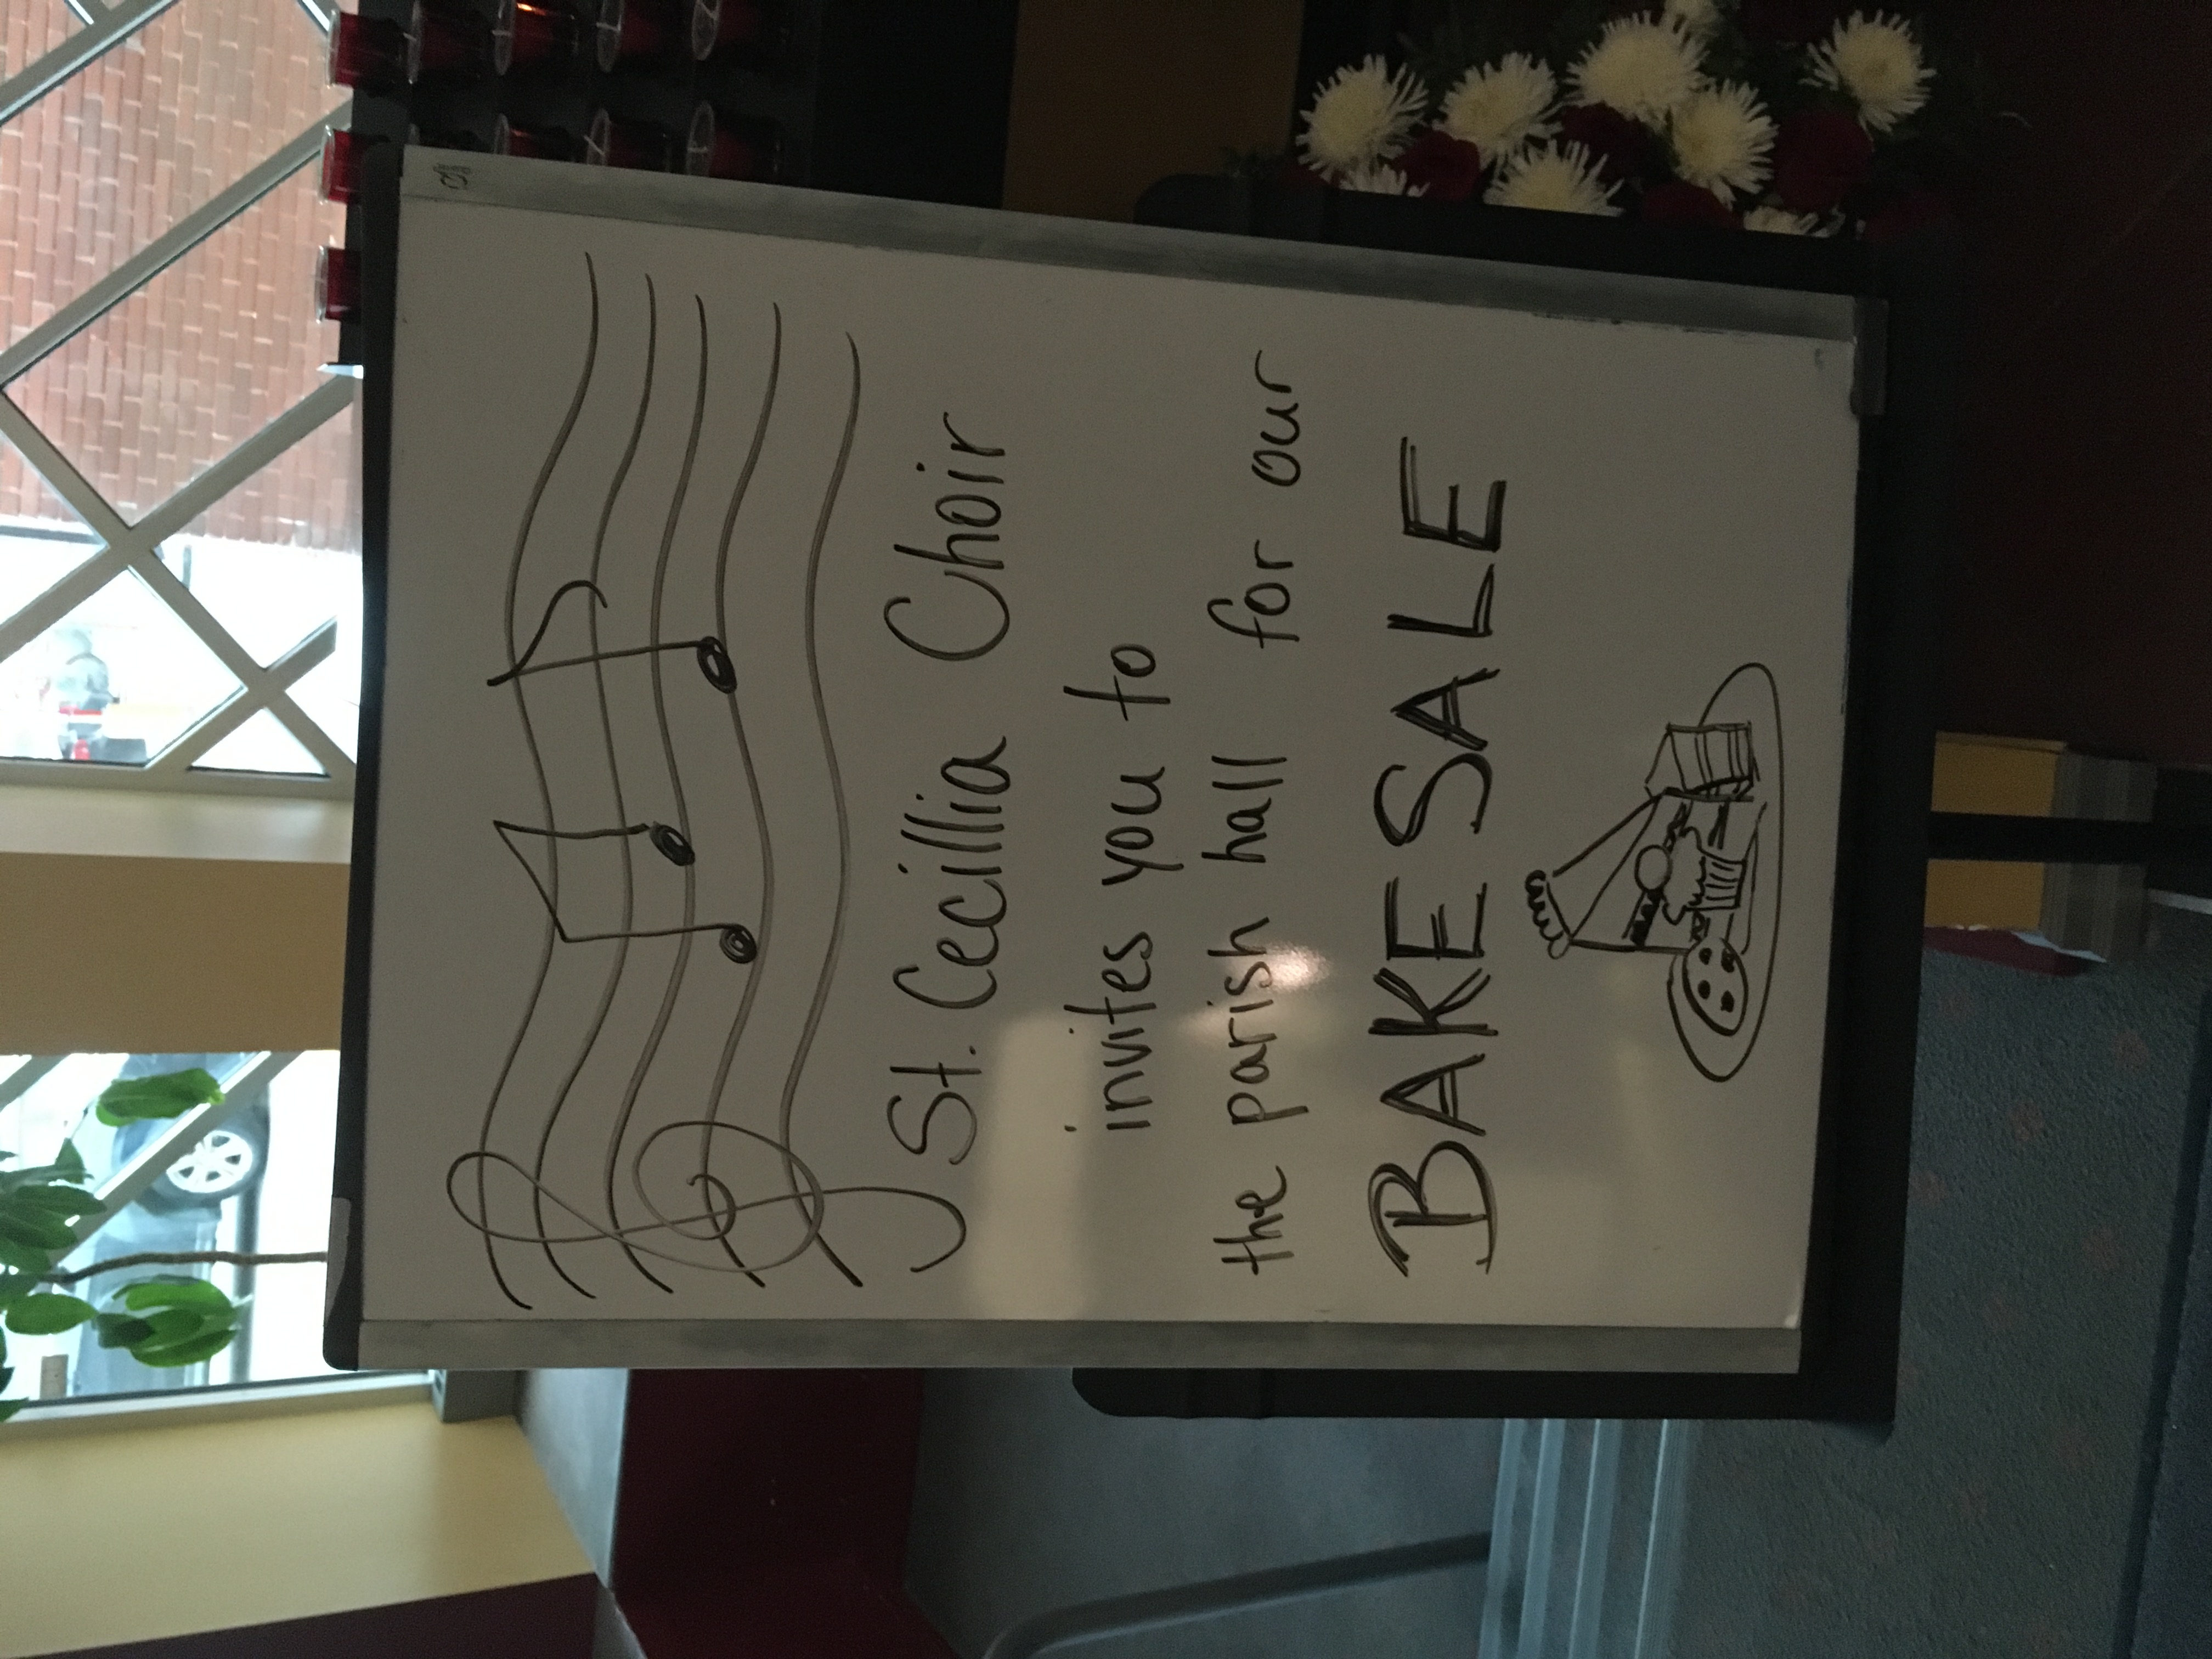 St. Cecillia Choir
invites you to
the parish hall for our
BAKE SALE